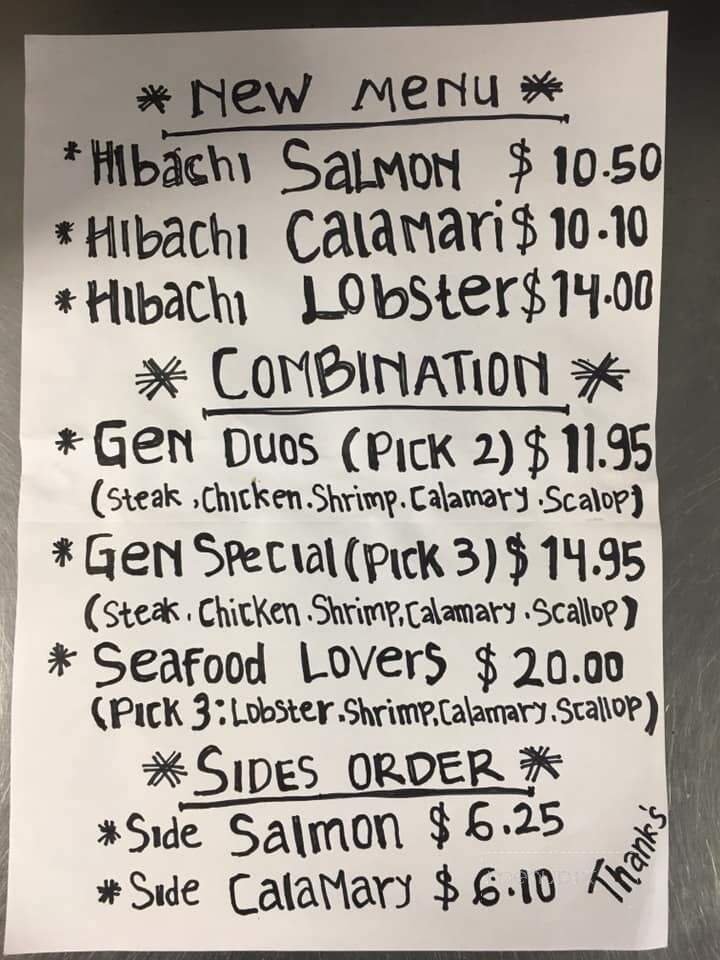 * New Menu *
* Hibachi Salmon $ 10.50
* Hibachi Calamari $ 10.10
* Hibachi Lobster $ 14.00
* COMBINATION *
* Gen Duos (Pick 2) $ 11.95
(Steak, Chicken. Shrimp. Calamary. Scalop)
* Gen Special (Pick 3) $ 14.95
(Steak. Chicken. Shrimp, Calamary. Scallop)
* Seafood Lovers $ 20.00
(Pick 3: Lobster. Shrimp, Calamary. Scallop)
* SIDES ORDER *
* Side Salmon $ 6.25
* Side Calamary $ 6.10
Thank's